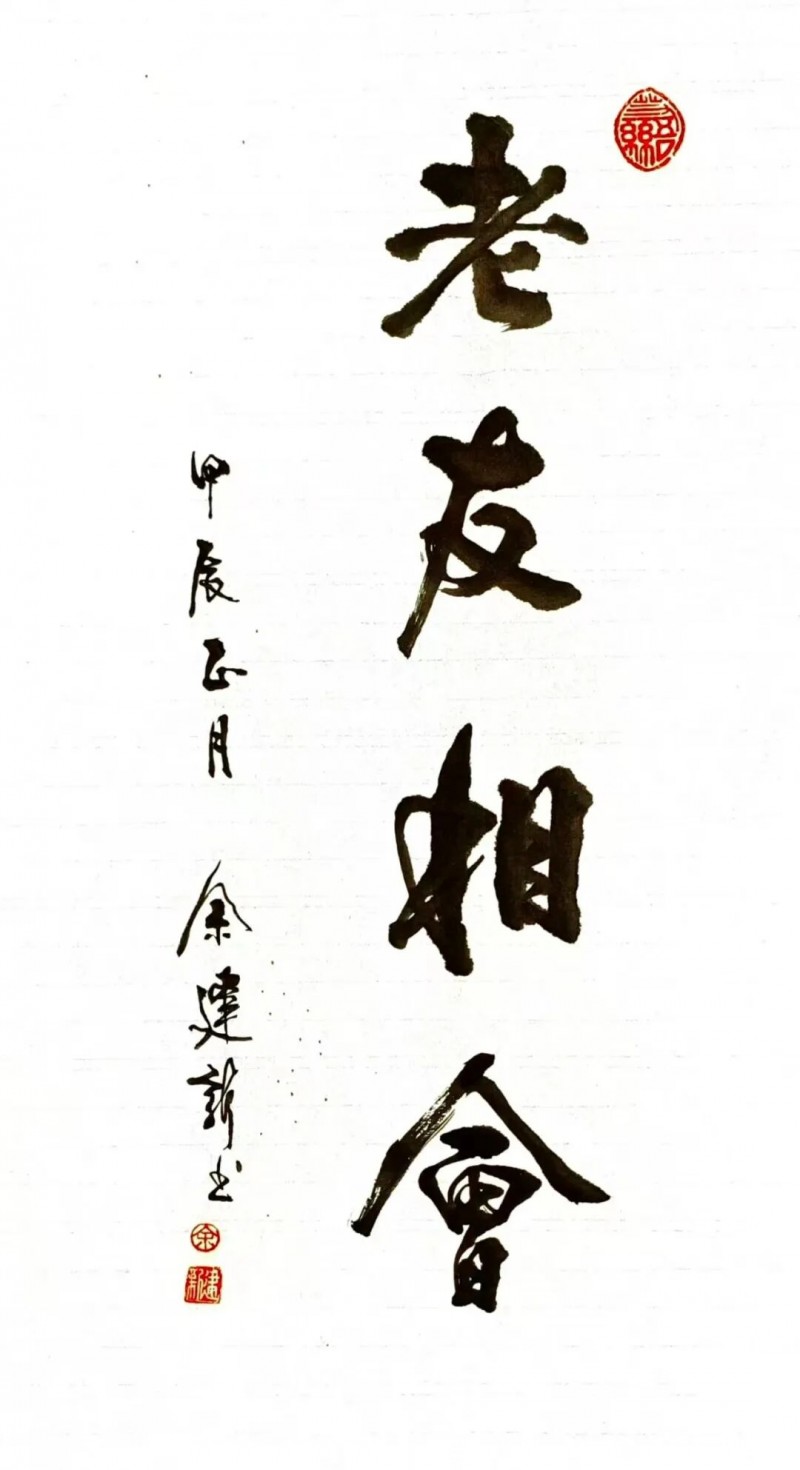 老友相會
甲辰正月 余建新书
余
建新